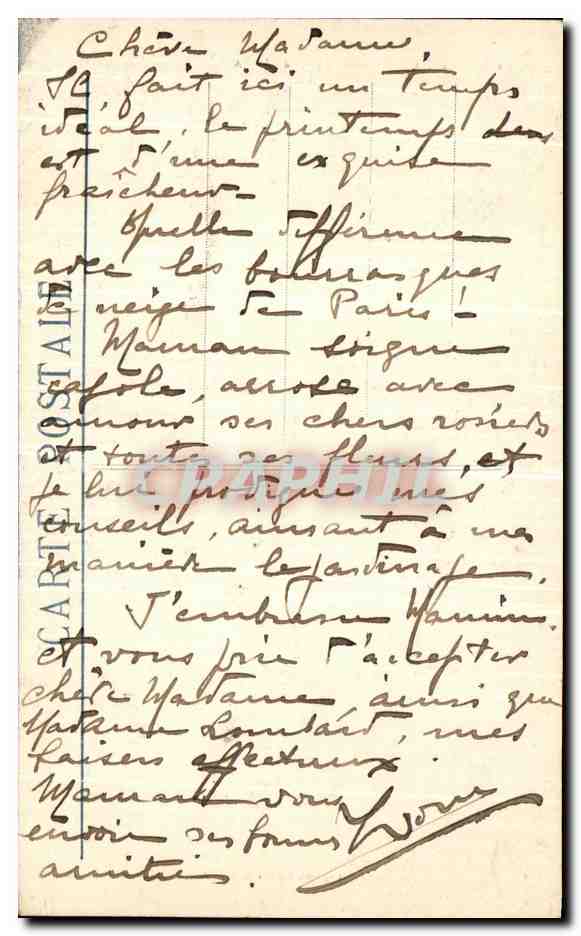 Chère Madame,
Il fait ici un temps
idéal, le printemps
est d'une exquise
fraîcheur -
Quelle différence
avec les bourrasques
de neige de Paris !
Maman soigne
cajole, arrose avec
amour ses chers rosiers
et toutes ses fleurs, et
je lui prodigue mes
conseils, aimant à ma
manière le jardinage.
J'embrasse
et vous prie d'accepter
chère Madame, ainsi que
Madame Lombard, mes
baisers affectueux.
Maman vous
envoie ses bonnes
amitiés.
Yvonne
CARTE POSTALE
CPAPHIL